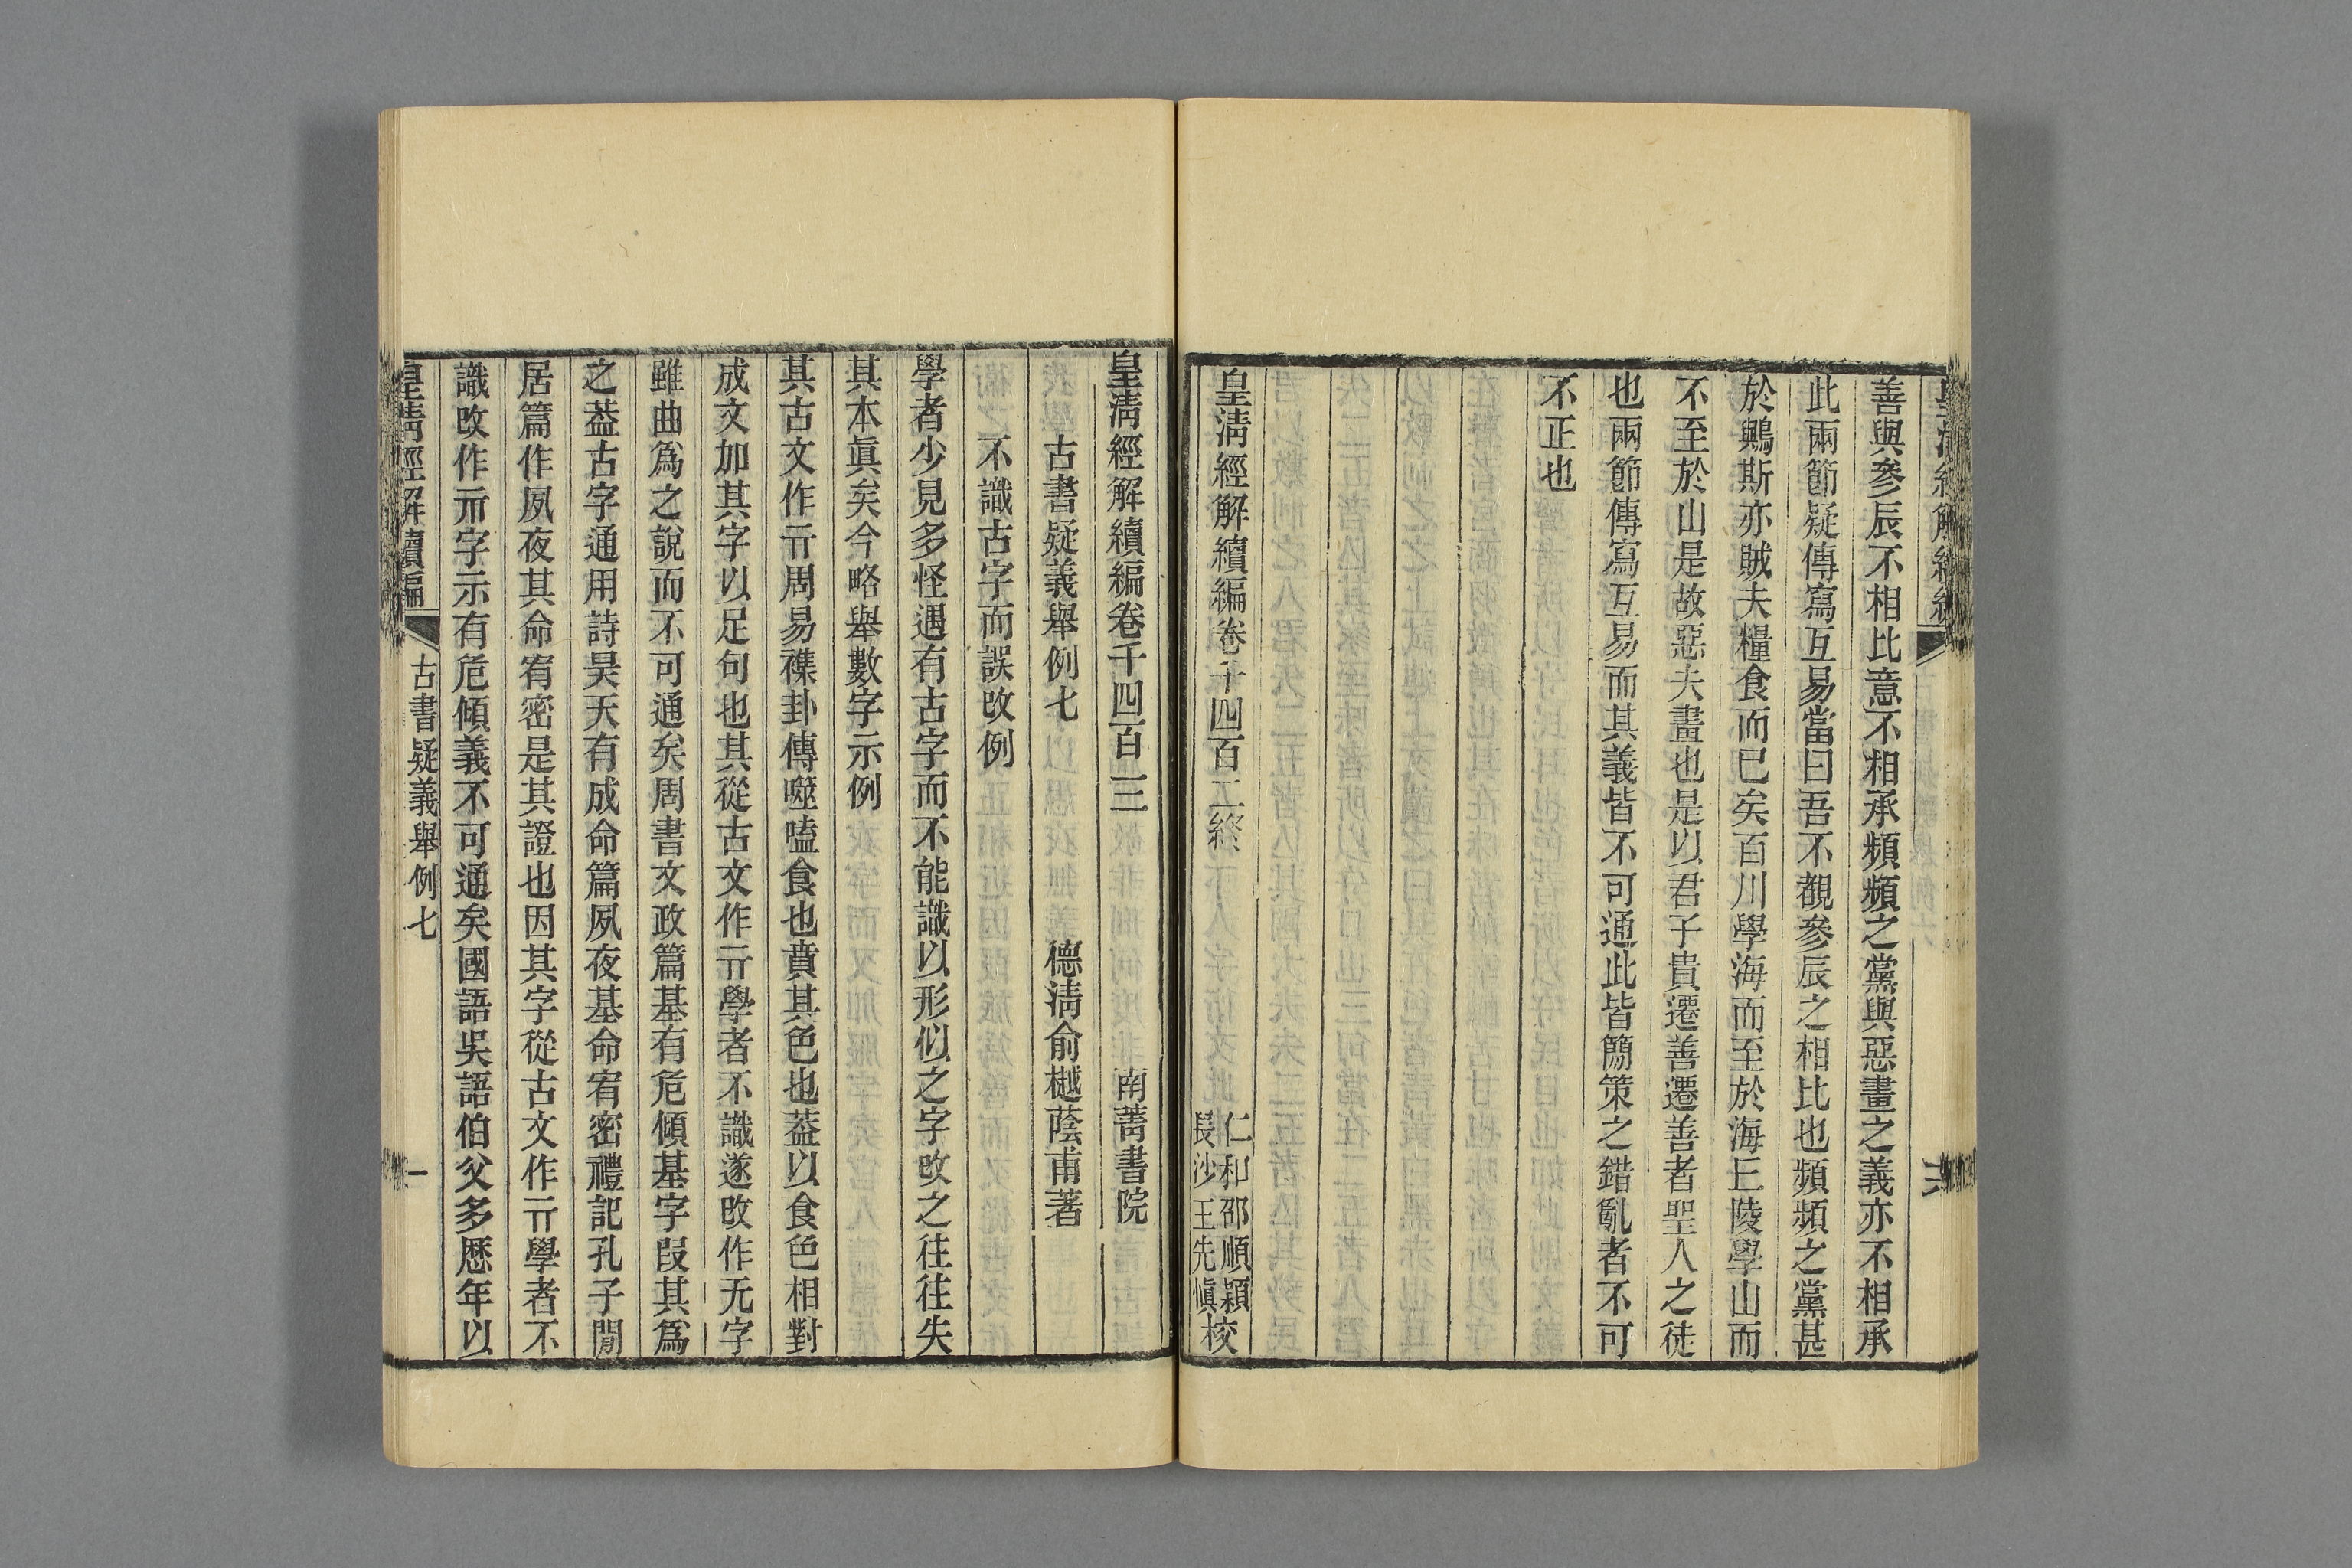 善與參辰不相比意不相承頻頻之黨與惡畫之義亦不相承
此兩節疑傳寫互易當曰吾不覩參辰之相比也頻頻之黨甚
於鷍斯亦賊夫糧食而已矣百川學海而至於海丘陵學山而
不至於山是故惡夫畫也是以君子貴遷善遷善者聖人之徒
也兩節傳寫互易而其義皆不可通此皆簡策之錯亂者不可
不正也
皇淸經解續編卷千四百二終
仁和邵順穎
長沙王先愼校
皇淸經解續編卷千四百三
南菁書院
古書疑義舉例七
德淸俞樾蔭甫著
不識古字而誤改例
學者少見多怪遇有古字而不能識以形似之字改之往往失
其本眞矣今略舉數字示例
其古文作亓周易襍卦傳噬嗑食也賁其色也葢以食色相對
成文加其字以足句也其從古文作亓學者不識遂改作无字
雖曲爲之說而不可通矣周書文政篇基有危傾基字叚其爲
之葢古字通用詩昊天有成命篇夙夜基命宥密禮記孔子閒
居篇作夙夜其命宥密是其證也因其字從古文作亓學者不
識改作示字示有危傾義不可通矣國語吳語伯父多歷年以
皇淸經解續編
古書疑義舉例七
一